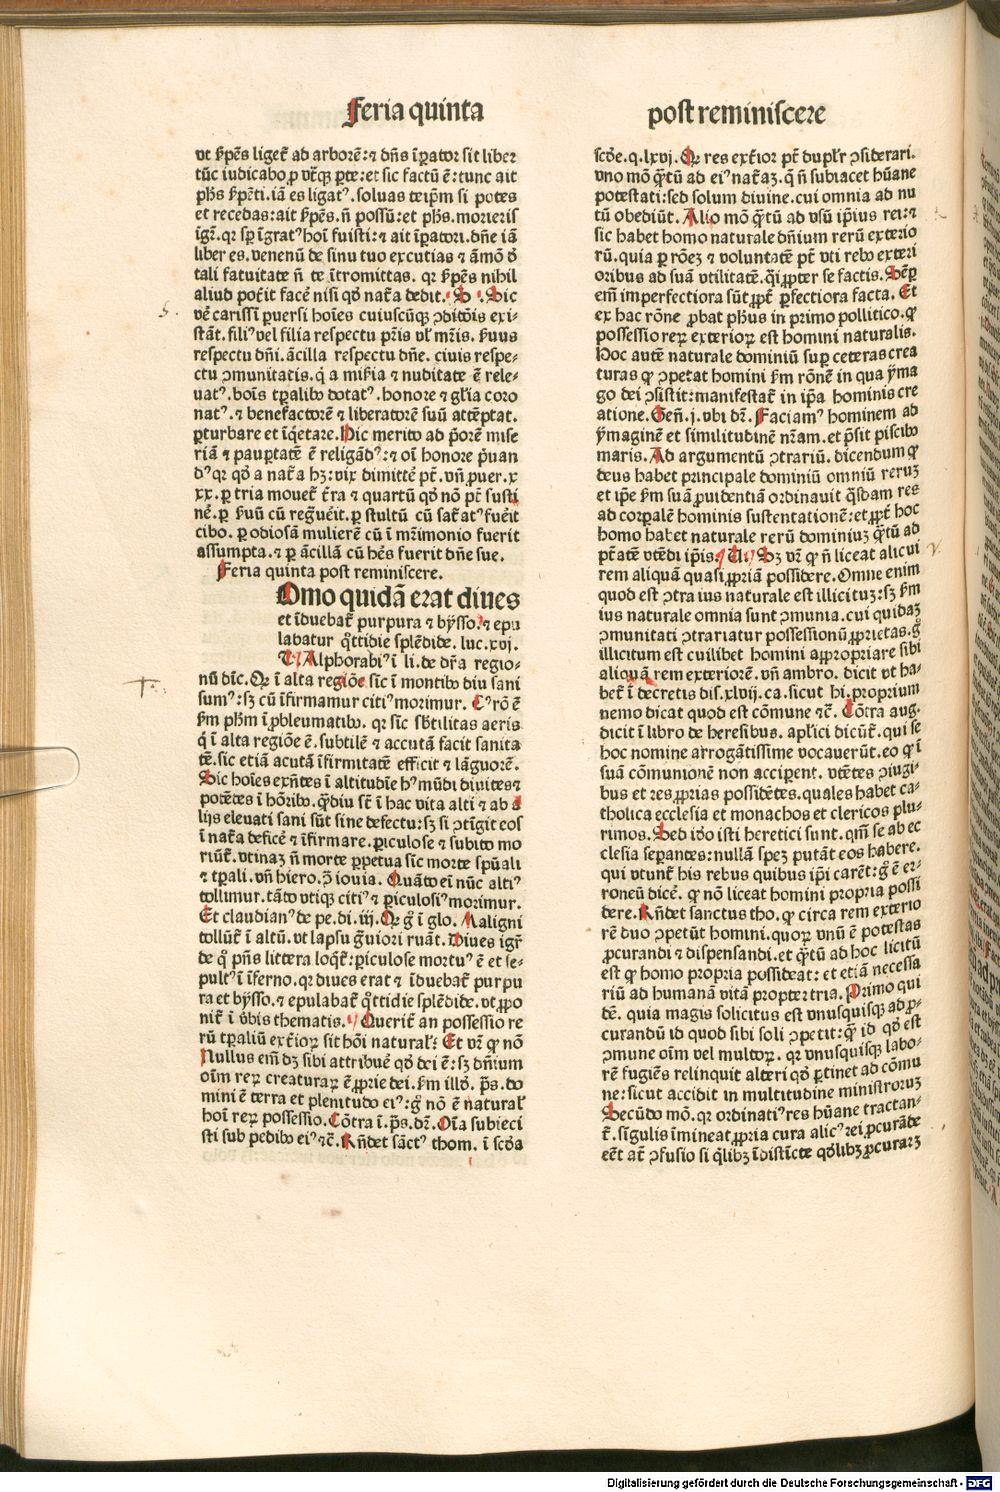 Feria quinta
vt ẜpēs liget᷑ ad arborē: ⁊ dn̄s īꝑator sit liber
tūc iudicabo ꝓ vtꝛ̄q̄ꝫ ꝑte: et sic factū ē: tunc ait
ph̄s ẜpēti. iā es ligatꝰ. soluas teip̄m si potes
et recedas: ait ẜpēs. n̄ possū: et ph̄s. morieris
igr̄. qꝛ sꝑ īgratꝰ hoī fuisti: ⁊ ait īꝑatori. dn̄e iā
liber es. venenū de sinu tuo excutias ⁊ āmō ō
tali fatuitate n̄ te ītromittas. qꝛ ẜpēs nihil
aliud pot̄it facē nisi qð nat̄a dedit. S . Sic
vē carissī ꝑuersi hoīes cuiuscūqꝫ ↄditōis exi-
stāt. filiꝰ vel filia respectu pr̄is vl̓ mr̄is. ẜuus
respectu dn̄i. ācilla respectu dn̄e. ciuis respe-
ctu ↄmunitatis. q̇ a miẜia ⁊ nuditate ē rele-
uatꝰ. bois tꝑalibꝰ dotatꝰ. honore ⁊ gl̄ia coro
natꝰ. ⁊ benefactorē ⁊ liberatorē suū attēptat.
ꝑturbare et īq̇etare. Hic merito ad p̄orē mise
riā ⁊ pauꝑtatē ē religādꝰ: ⁊ oī honore p̄uan
dꝰ qꝛ qð a nat̄a hꝫ: vix dimittē pt̄. vn̄ ꝓuer. x
xx. ꝑ tria mouet᷑ t̄ra ⁊ quartū qð nō pt̄ susti
nē. ꝑ ẜuū cū reg̓uēit. ꝑ stultū cū sat᷑atꝰ fuēit
cibo. ꝑ odiosā mulierē cū ī mr̄imonio fuerit
assumpta. ⁊ ꝑ ācillā cū hēs fuerit dn̄e sue.
Feria quinta post reminiscere.
Omo quidā erat diues
et īduebat᷑ purpura ⁊ bysso. ⁊ epu
labatur q̊ttidie splēdide. luc. xvj.
T Alphorabiꝰ ī li. de dr̄a regio-
nū dīc. Qꝙ ī alta regiōe sic ī montibꝰ diu sani
sumꝰ: sꝫ cū īfirmamur citiꝰ morimur. Cꝰ rō ē
ẜm ph̄m ī ꝓbleumatibꝰ. qꝛ sic sb̓tilitas aeris
q̇ ī alta regiōe ē. subtilē ⁊ accutā facit sanita
tē. sic etiā acutā īfirmitatē efficit ⁊ lāguorē.
Sic hoīes exn̄tes ī altitudīe hꝰ mūdi diuites ⁊
potētes ī hōribꝰ. q̄diu st̄ ī hac vita alti ⁊ ab a
lijs eleuati sani sūt sine defectu: sꝫ si ↄtīgit eos
ī nat̄a deficē ⁊ īfirmare. ꝑiculose ⁊ subito mo
riūt᷑. vtinaꝫ n̄ morte ꝑpetua sic morte spūali
⁊ tꝑali. vn̄ hiero. ↄ̄ iouia. Quāto ei̓ nūc altiꝰ
tollimur. tāto vtiqꝫ citiꝰ ⁊ ꝑiculosiꝰ morimur.
Et claudianꝰ de pe. di. iij. Qꝙ g̊ ī glo. Maligni
tollūt᷑ ī altū. vt lapsu g̓uiori ruāt. Diues igr̄
de q̊ pn̄s littera loqt᷑: ꝑiculose mortuꝰ ē et se-
pultꝰ ī īferno. qꝛ diues erat ⁊ īduebat᷑ purpu
ra et bysso. ⁊ epulabat᷑ q̊ttidie splēdide. vt ꝓpo
nit᷑ ī v̓bis thematis. Querit᷑ an possessio re
rū tꝑaliū ext̓ioꝝ sit hōi naturalꝭ. Et vr̄ ꝙ nō
Nullus em̄ dꝫ sibi attribuē qð dei ē: sꝫ dn̄ium
oīm reꝝ creaturaꝝ ē ꝓprie dei. ẜm illð. p̄s. do
mini ē terra et plenitudo eiꝰ: g̊ nō ē natural̓
hoī reꝝ possessio. Cōtra ī. p̄s. dꝛ̄. Oīa subieci
sti sub pedibꝰ eiꝰ ⁊c̄. Rn̄det sāctꝰ thom. ī scðа
post reminiscere
scðe. q. lxvj. Qꝙ res ext̓ior pt̄ dupl̓r ↄsiderari.
vno mō q̊tū ad eiꝰ nat̄aꝫ. q̄ n̄ subiacet hūane
potestati: sed solum diuine. cui omnia ad nu
tū obediūt. Alio mō q̊tū ad vsū ip̄ius rei: ⁊
sic habet homo naturale dn̄ium rerū exterio
rū. quia ꝑ rōeꝫ ⁊ voluntatē pt̄ vti rebꝰ exteri
oribus ad suā vtilitatē. q̄si ꝓpter se factis. Sēꝑ
em̄ imperfectiora sūt ꝓpt̓ ꝑfectiora facta. Et
ex hac rōne ꝓbat ph̄us in primo pollitico. ꝙ
possessio reꝝ exterioꝝ est homini naturalis.
Hoc autē naturale dominiū suꝑ ceteras crea
turas ꝙ ↄpetat homini ẜm rōnē in qua yma
go dei ↄsistit: manifestat᷑ in ip̄a hominis cre
atione. Gen̄. j. vbi dꝛ̄. Faciamꝰ hominem ad
ymaginē et similitudinē nr̄am. et p̄sit piscibꝰ
maris. Ad argumentū ↄtrariū. dicendum ꝙ
deus habet principale dominiū omniū reruꝫ
et ip̄e ẜm suā ꝓuidentiā ordinauit q̄sdam res
ad corꝑalē hominis sustentationē: et ꝓpt̓ hoc
homo habet naturale rerū dominiuꝫ q̊tū ad
pt̄atē vtēdi ip̄is. Sꝫ vr̄ ꝙ n̄ liceat alicui
rem aliquam quasi ꝓpriā possidere. Omne enim
quod est ↄtra ius naturale est illicituꝫ: sꝫ ẜm
ius naturale omnia sunt ↄmunia. cui quidaꝫ
ↄmunitati ↄtrariatur possessionū ꝓprietas. g̊
illicitum est cuilibet homini apꝓpriare sibi
aliquā rem exteriorē. vn̄ ambro. dicit vt ha-
bet᷑ ī decretis dis. xlvij. ca. sicut hi. proprium
nemo dicat quod est cōmune ⁊c̄. Cōtra aug.
dicit ī libro de heresibus. apl̓ici dicūt᷑. qui se
hoc nomine arrogātissime vocauerūt. eo ꝙ ī
suā cōmunionē non acciꝑent. vtētes ↄiugi-
bus et res ꝓprias possidētes. quales habet ca-
tholica ecclesia et monachos et clericos plu-
rimos. Sed iðo isti heretici sunt. qm̄ se ab ec
clesia seꝑantes: nullā speꝫ putāt eos habere.
qui vtunt᷑ his rebus quibus ip̄i carēt: g̊ ē er-
roneū dicē. ꝙ nō liceat homini propria possi
dere. Rn̄det sanctus tho. ꝙ circa rem exterio
rē duo ↄpetūt homini. quoꝝ vnū ē potestas
ꝓcurandi ⁊ dispensandi. et q̊tū ad hoc licitū
est ꝙ homo propria possideat: et etiā necessa
riū ad humanā vitā propter tria. Primo qui
dē. quia magis solicitus est vnusquisqꝫ ad ꝓ-
curandū id quod sibi soli ↄpetit: q̄ꝫ id qð est
ↄmune oīm vel multoꝝ. qꝛ vnusquisqꝫ labo-
rē fugiēs relinquit alteri qð ꝑtinet ad cōmu
ne: sicut accidit in multitudine ministroruꝫ
Secūdo mō. qꝛ ordinatiꝰ res hūane tractan-
t᷑. si sīgulis īmineat ꝓpria cura alicꝰ rei ꝓcurāde
eēt at̄ ↄfusio si q̄libꝫ īdistīcte qðlibꝫ ꝓcuraꝫ
Digitalisierung gefördert durch die Deutsche Forschungsgemeinschaft - DFG